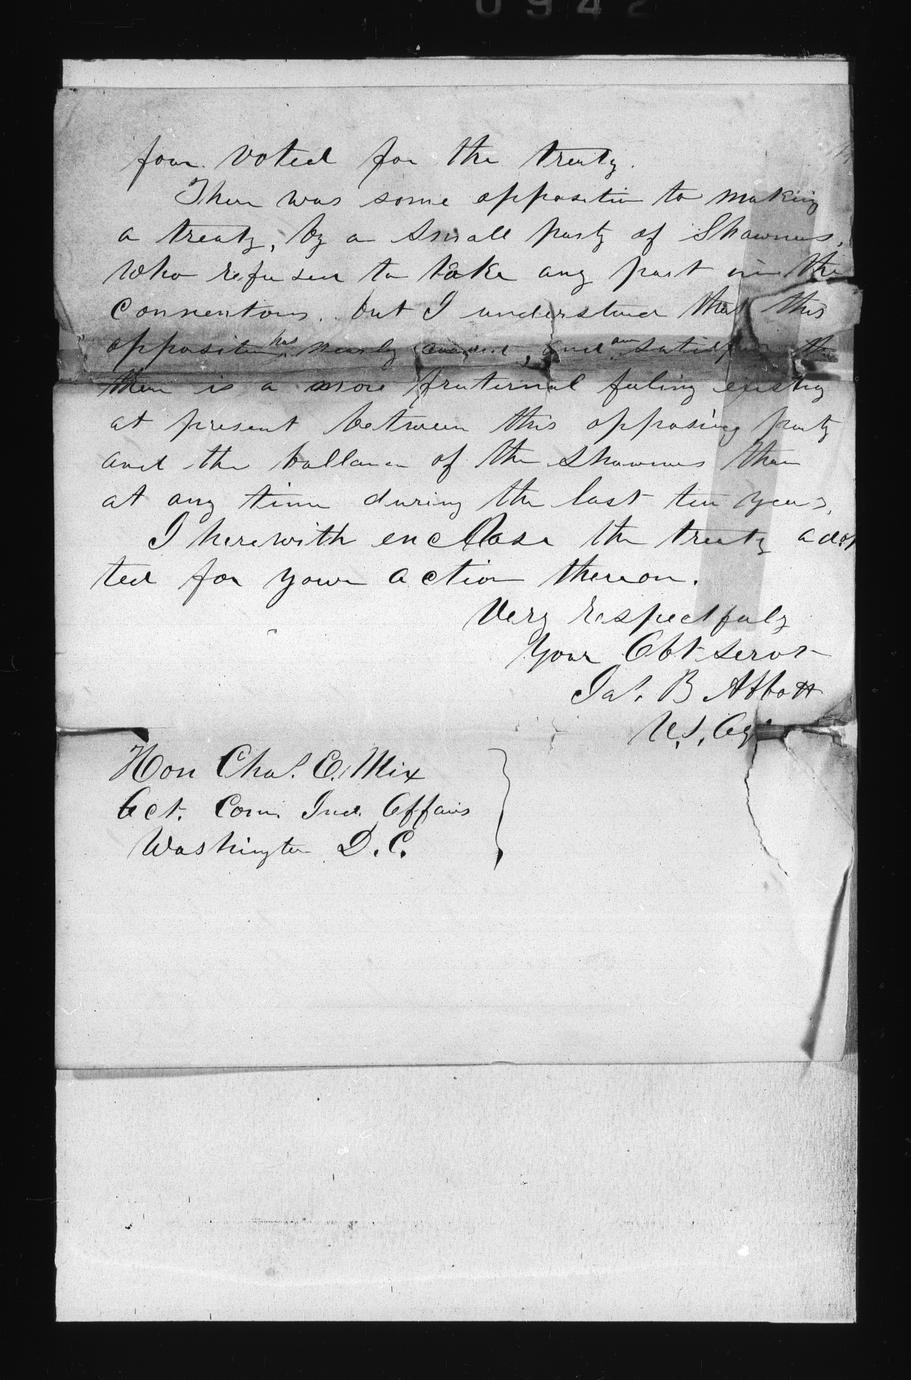 0942
four voted for the treaty.
There was some opposition to making
a treaty, by a small party of Shawnees,
who refused to take any part in the
conventions. but I understand that this
opposition has nearly ceased, and am satisfied
there is a more fraternal feeling existing
at present between this opposing party
and the ballance of the Shawnees than
at any time during the last ten years,
I herewith enclose the treaty adop
ted for your action thereon.
Very respectfuly
Your Obt servt
Jas. B Abbott
U.S. Agt
Hon Chas. E. Mix
Act. Com. Ind. Affairs
Washington D.C.